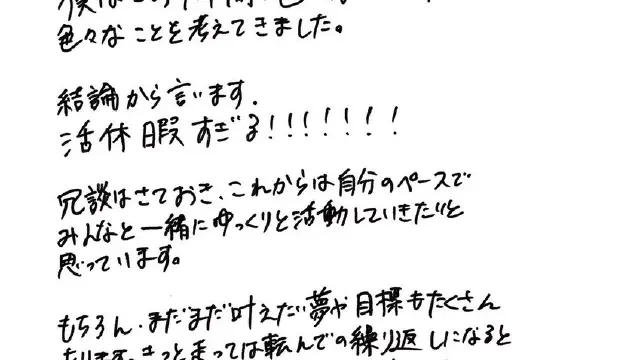 僕はこの
色々なことを考えてきました。
結論から言います.
活休 暇すぎる!!!!!!!
冗談はさておき、これからは自分のペースで
みんなと一緒にゆっくりと活動していきたいと
思っています。
もちろん、まだまだ叶えたい夢や目標もたくさん
あります。きっと走っては転んでの繰り返しになると